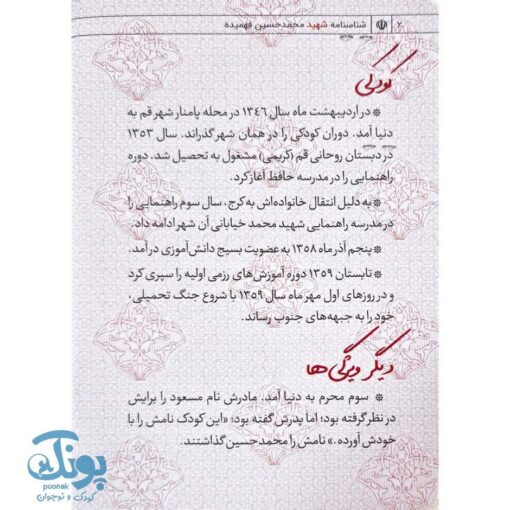 ۲ شناسنامه شهید محمدحسین فهمیده
کودکی
* در اردیبهشت ماه سال ۱۳۴۶ در محله پامنار شهر قم به
دنیا آمد. دوران کودکی را در همان شهر گذراند. سال ۱۳۵۳
در دبستان روحانی قم (کریمی) مشغول به تحصیل شد. دوره
راهنمایی را در مدرسه حافظ آغاز کرد.
* به دلیل انتقال خانواده‌اش به کرج، سال سوم راهنمایی را
در مدرسه راهنمایی شهید محمد خیابانی آن شهر ادامه داد.
* پنجم آذر ماه ۱۳۵۸ به عضویت بسیج دانش‌آموزی در آمد.
* تابستان ۱۳۵۹ دوره آموزش‌های رزمی اولیه را سپری کرد
و در روزهای اول مهر ماه سال ۱۳۵۹ با شروع جنگ تحمیلی،
خود را به جبهه‌های جنوب رساند.
دیگر ویژگی ها
* سوم محرم به دنیا آمد. مادرش نام مسعود را برایش
در نظر گرفته بود؛ اما پدرش گفته بود؛ «این کودک نامش را با
خودش آورده.» نامش را محمدحسین گذاشتند.
پونک
puonak
کودک و نوجوان